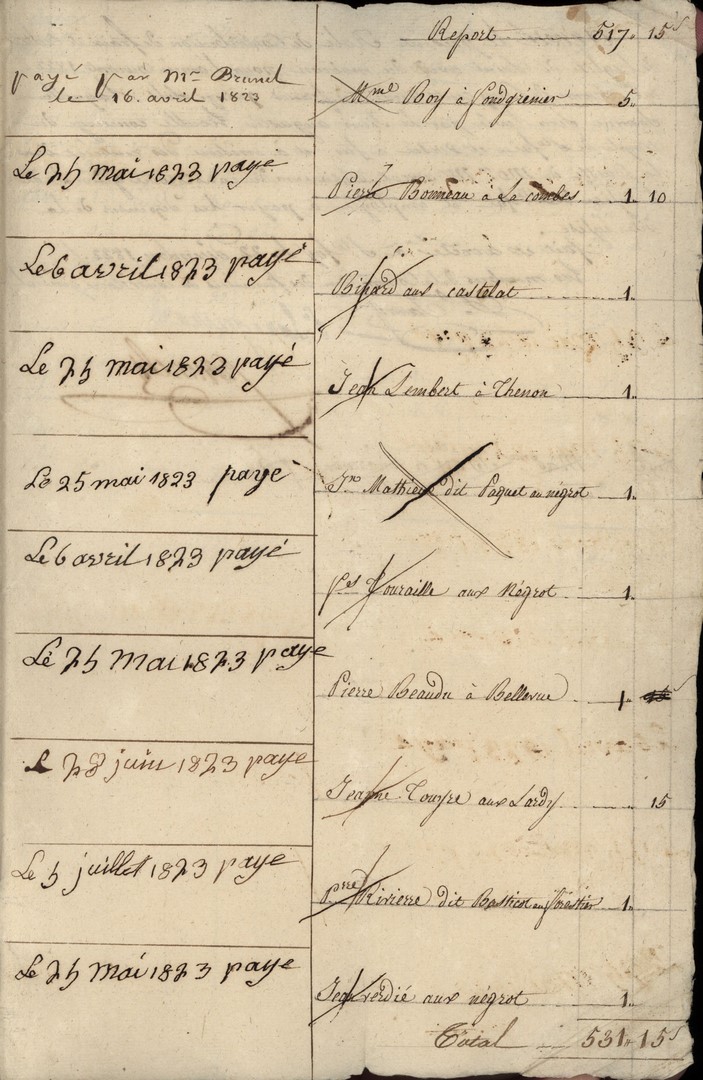 Report 517. 15s
payé par Mr Brunel
le 16. avril 1823
Mme Boy à fondgrénier 5.
Le 25 mai 1823 payé
Pierre Bonneau à La combes 1. 10
Le 6 avril 1823 payé
aux castelat 1.
Le 25 mai 1823 payé
Jean Lembert à Thenon 1.
Le 25 mai 1823 payé
Jn Mathieu dit Paquet au négrot 1.
Le 6 avril 1823 payé
aux Négrot 1.
Le 25 Mai 1823 paye
Pierre Beaudu à Bellevue 1.
Le 28 juin 1823 payé
Jeanne Touyre aux Lardy 15
Le 5 juillet 1823 paye
Prre Rivierre dit 1.
Le 25 Mai 1823 paye
Jean verdié aux négrot 1.
Total 531. 15s